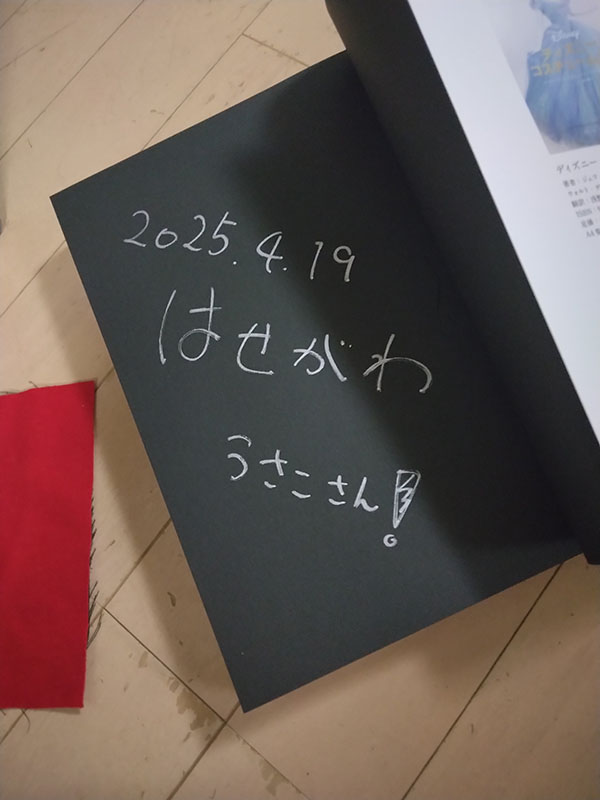 2025.4.19
はせがわ
うさこさん!
Disney
ディズニー